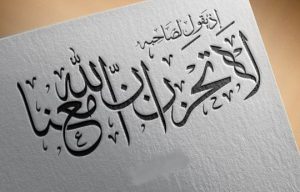 إذ يقول لصاحبه
لا تحزن إن الله معنا